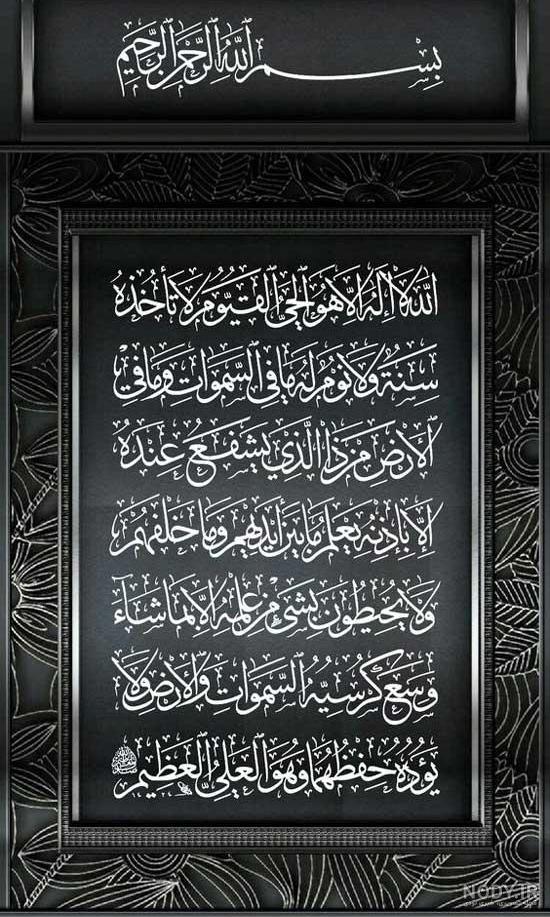 بِسْمِ اللّٰهِ الرَّحْمٰنِ الرَّحِيمِ
اللّٰهُ لَا إِلٰهَ إِلَّا هُوَ الْحَيُّ الْقَيُّومُ لَا تَأْخُذُهُ
سِنَةٌ وَلَا نَوْمٌ لَهُ مَا فِي السَّمٰوَاتِ وَمَا فِي
الْأَرْضِ مَنْ ذَا الَّذِي يَشْفَعُ عِنْدَهُ
إِلَّا بِإِذْنِهِ يَعْلَمُ مَا بَيْنَ أَيْدِيهِمْ وَمَا خَلْفَهُمْ
وَلَا يُحِيطُونَ بِشَيْءٍ مِنْ عِلْمِهِ إِلَّا بِمَا شَاءَ
وَسِعَ كُرْسِيُّهُ السَّمٰوَاتِ وَالْأَرْضَ وَلَا
يَؤُدُهُ حِفْظُهُمَا وَهُوَ الْعَلِيُّ الْعَظِيمُ
NODY.IR